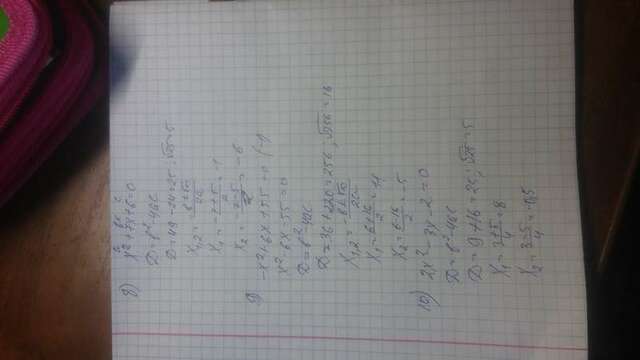 a вx c
8) x²+7x+6=0
D=в²-4ac
D=49-24=25; √25=5
X₁,₂=-в±√D/2a
X₁=-7+5/2=-1
X₂=-7-5/2=-6
9) -x²+6x+55=0 (-1)
x²-6x-55=0
D=в²-4ac
D=36+220=256, √256=16
X₁,₂=-в±√D/2a
X₁=6+16/2=11
X₂=6-16/2=-5
10) 2x²-3x-2=0
D=в²-4ac
D=9+16=25; √25=5
X₁=3+5/4=8
X₂=3-5/4=-0,5